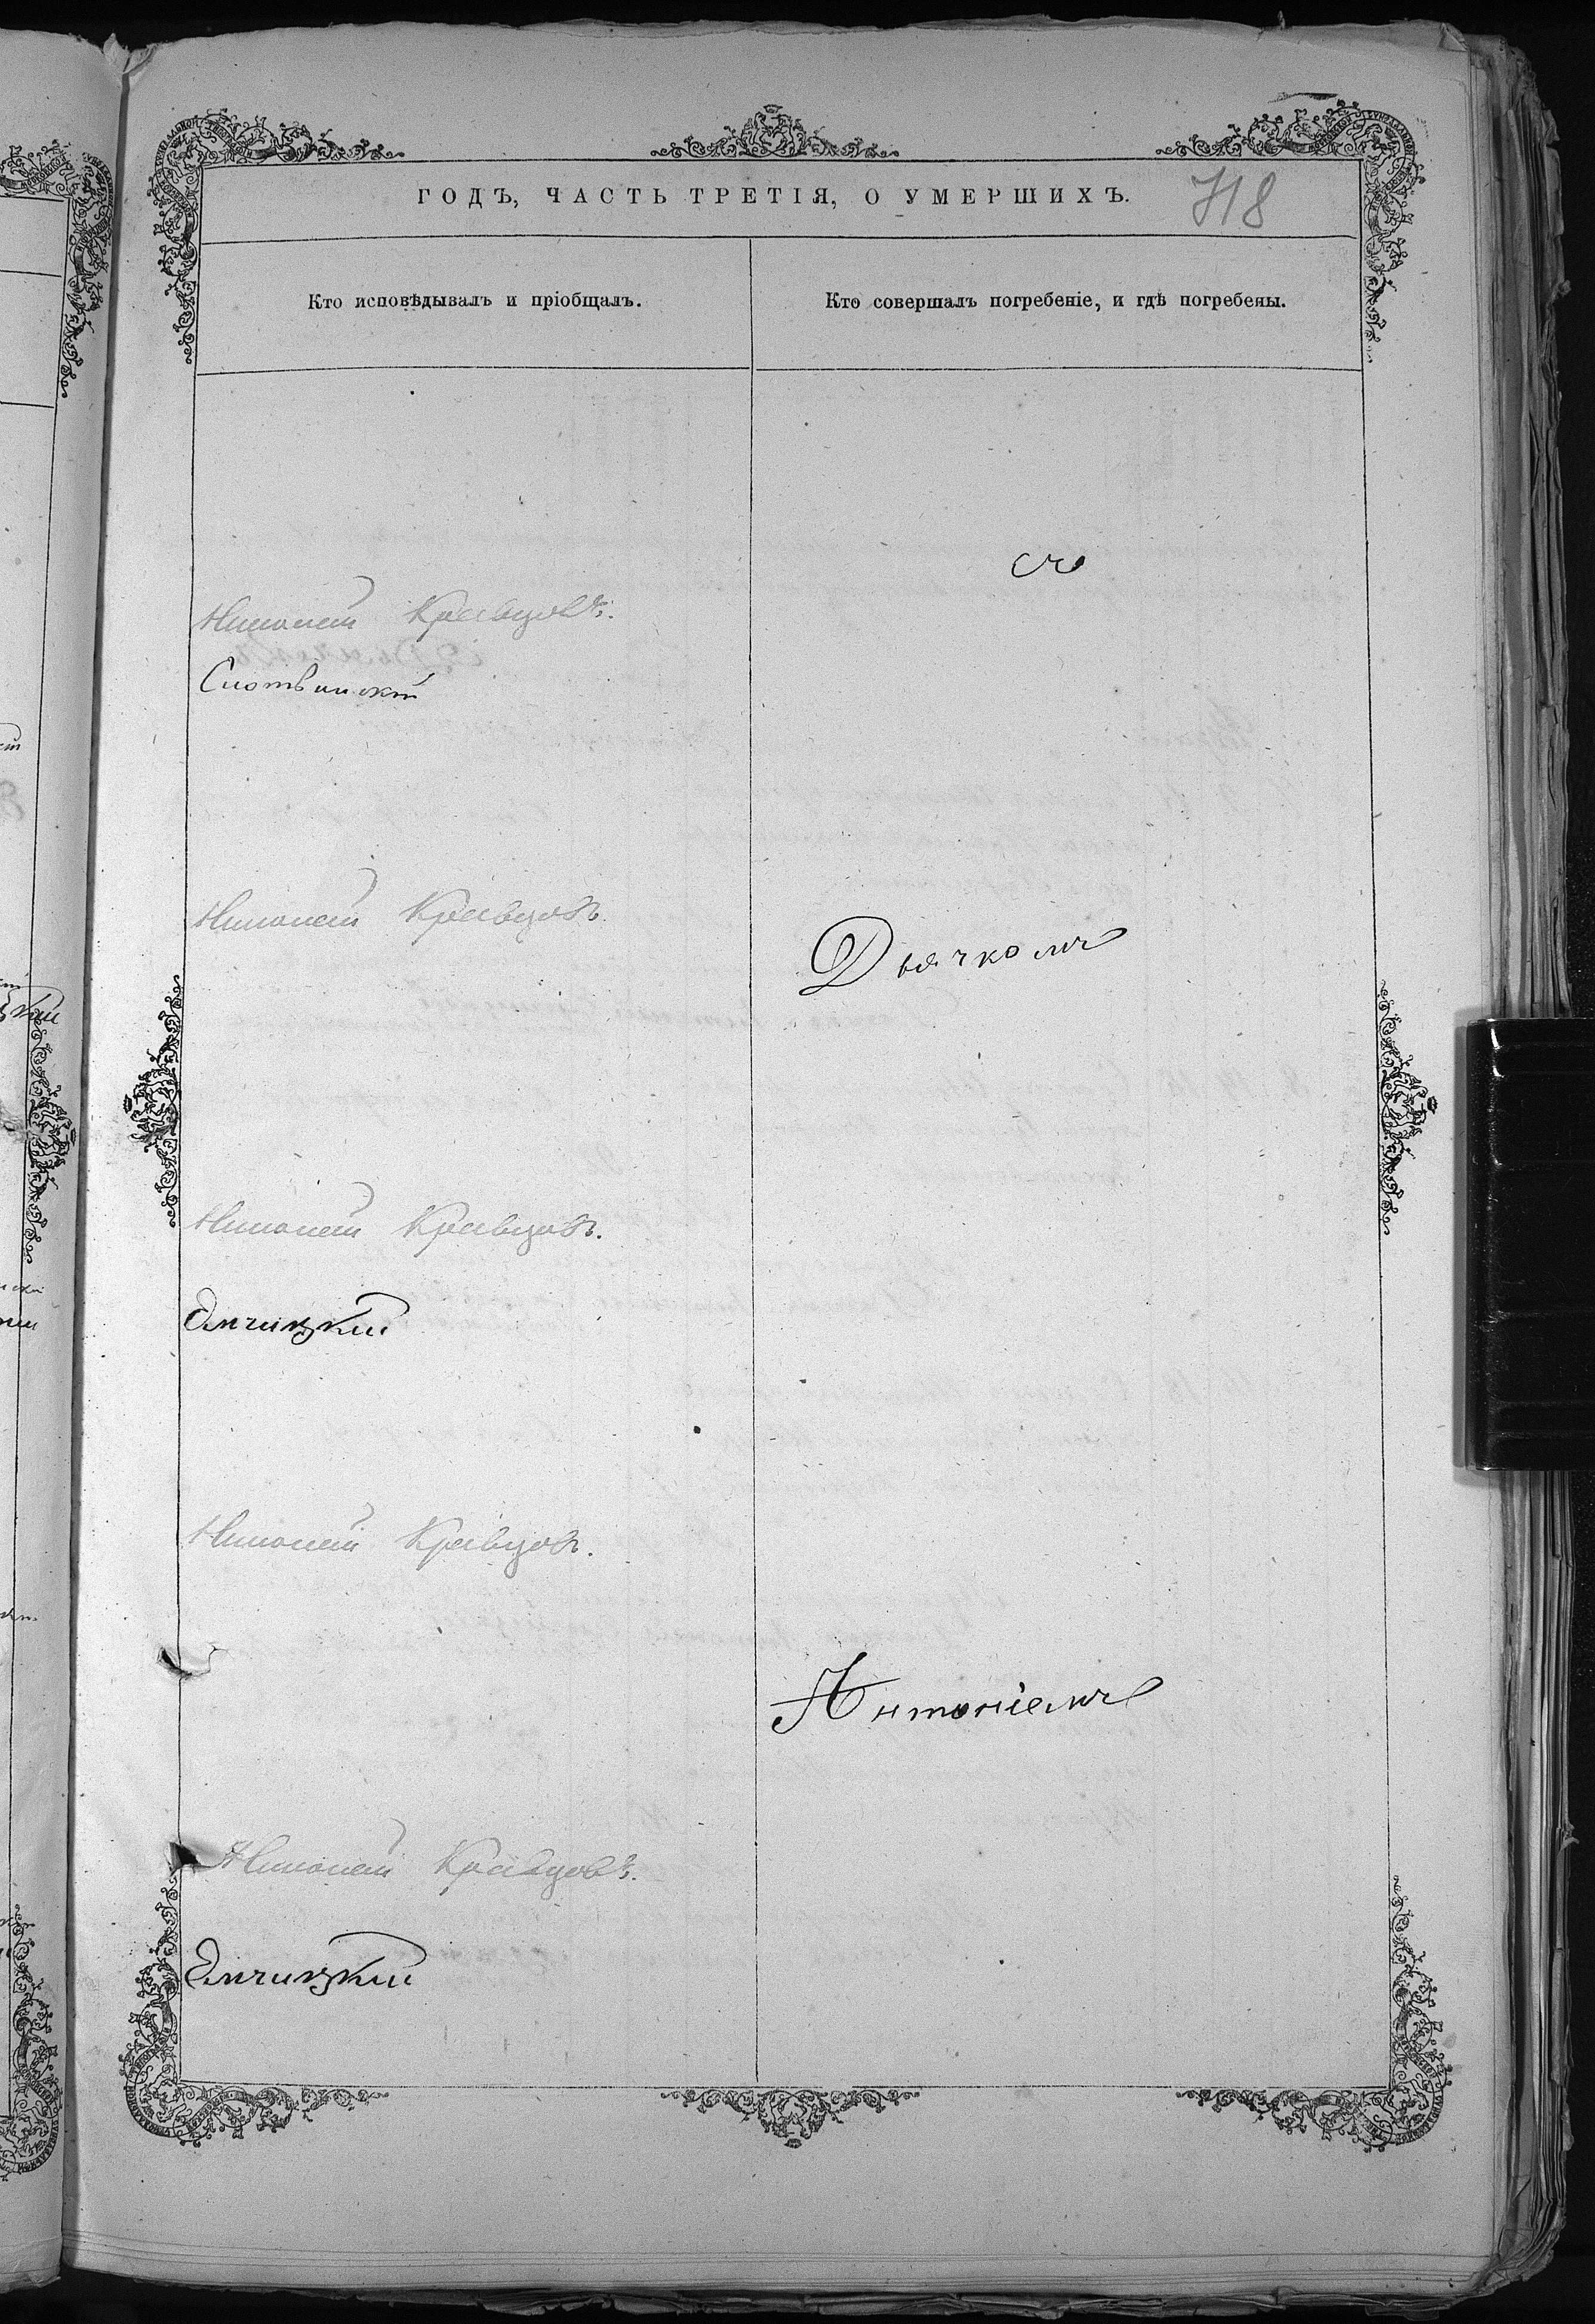 ГОДЪ, ЧАСТЬ ТРЕТІЯ, О УМЕРШИХЪ.
718
Кто исповѣдывалъ и пріобщалъ.
Кто совершалъ погребеніе, и гдѣ погребены.
съ
Николай Кравцовъ.
Николай Кравцовъ.
Дьячкомъ
Николай Кравцовъ.
Николай Кравцовъ.
Антоніемъ
Николай Кравцовъ.